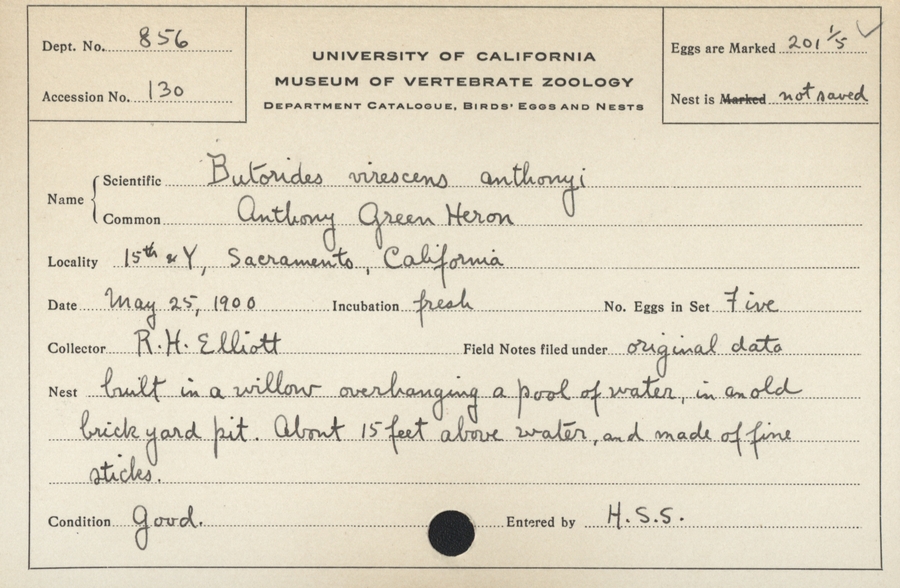 Dept. No. 856
Accession No. 130
UNIVERSITY OF CALIFORNIA
MUSEUM OF VERTEBRATE ZOOLOGY
DEPARTMENT CATALOGUE, BIRDS' EGGS AND NESTS
Eggs are Marked 201 1/5
Nest is Marked not saved
Name
Scientific Butorides virescens anthonyi
Common Anthony Green Heron
Locality 15th & Y, Sacramento, California
Date May 25, 1900 Incubation fresh No. Eggs in Set Five
Collector R.H. Elliott Field Notes filed under original data
Nest built in a willow overhanging a pool of water, in an old
brick yard pit. About 15 feet above water, and made of fine
sticks.
Condition Good. Entered by H.S.S.